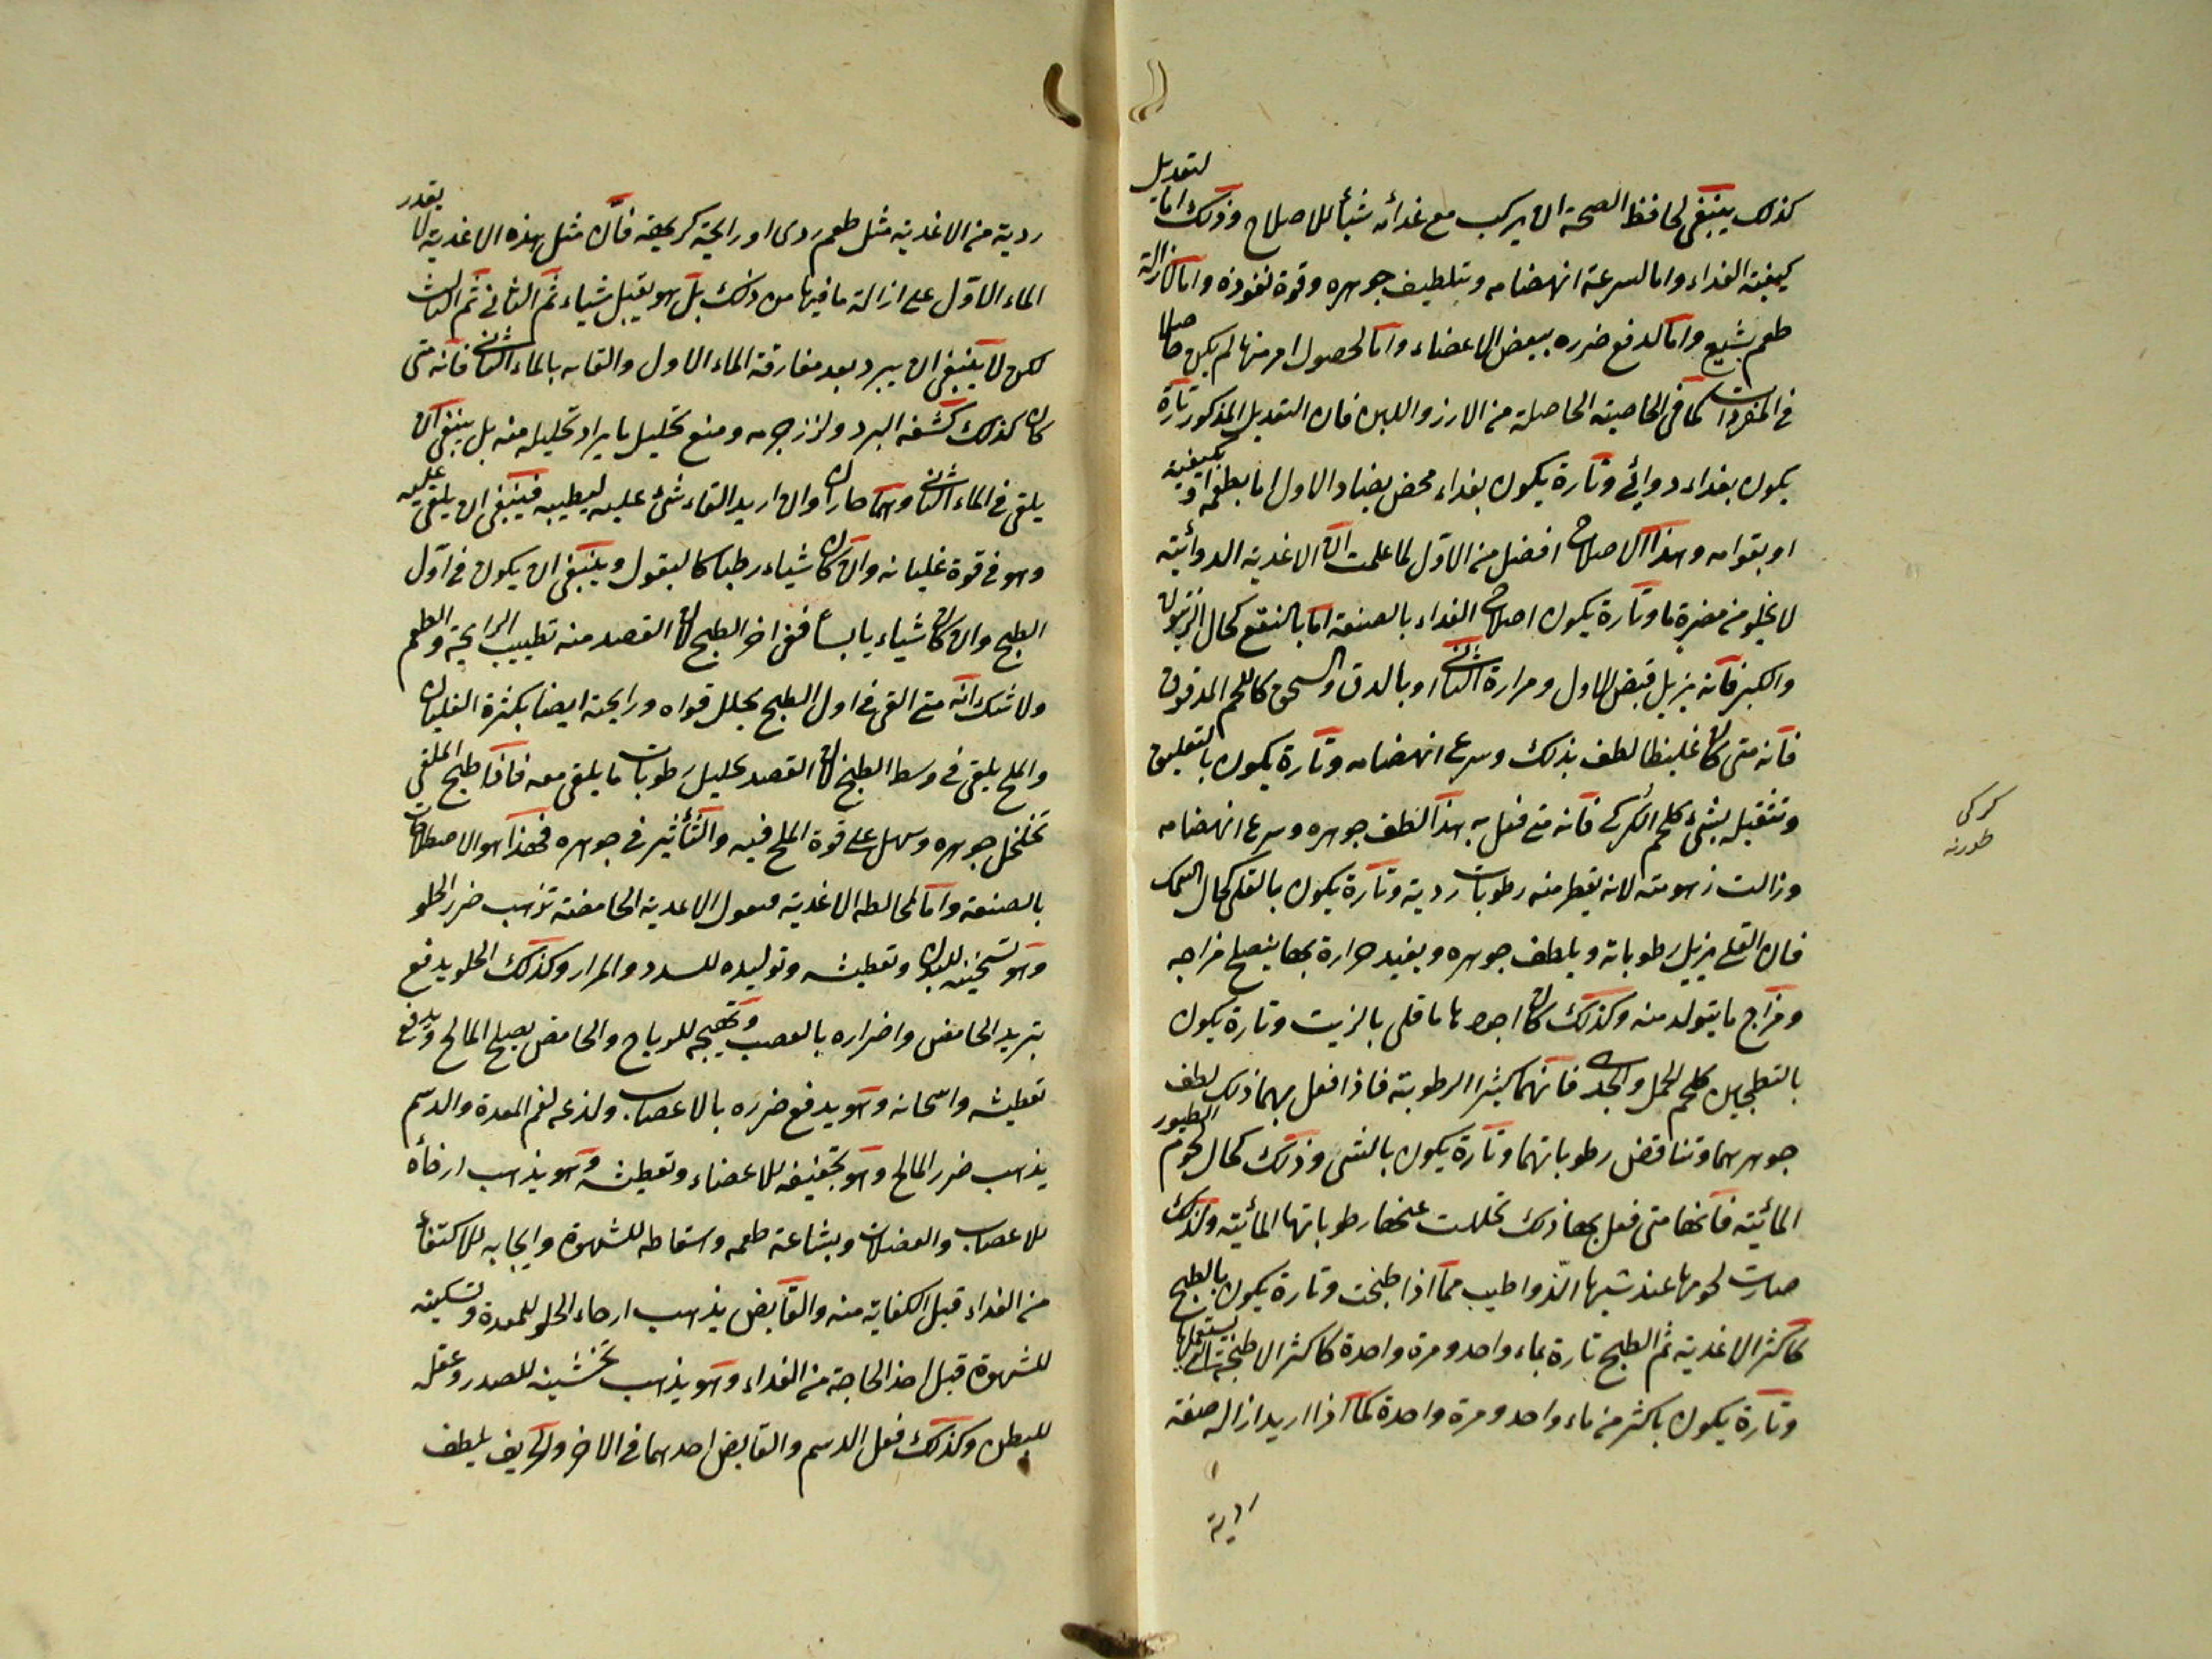 كذلك ينبغى لحافظ الصحة ان يركب مع غدائه شيأ للاصلاح وذلك اما لتعديل
كيفية الغداء واما لسرعة انهضامه وتلطيف جوهره وقوة نفوذه واما لازالة
طعم بشيع واما لدفع ضرره ببعض الاعضاء واما لحصول امر منها لم يكن حاصلا
فى المفردات كما فى الخاصية الحاصلة من الارز واللبن فان التعديل المذكور تارة
يكون بغداء دوائى وتارة يكون بغداء محض يضاد الاول اما بطعمه او بكيفية
او بقوامه وهذا الاصلاح افضل من الاول لما علمت ان الاغدية الدوائية
لا يخلو من مضرة ما وتارة يكون اصلاح الغداء بالصنعة اما بالنقع كحال الزيتون
والكبر فانه يزيل قبض الاول ومرارة الثانى او بالدق والسحق كاللحم المدقوق
فانه متى كان غليظا لطف بذلك وسرع انهضامه وتارة يكون بالتعليق
وتثقيله بشئ كلحم الكركى فانه متى فعل به هذا لطف جوهره وسرع انهضامه
وزالت زهومته لانه يقطر منه رطوبات ردية وتارة يكون بالقلى كحال السمك
فان القلى يزيل رطوباته ويلطف جوهره ويفيد حرارة بها ينصلح مزاجه
ومزاج ما يتولد منه وكذلك كان اجودها ما قلى بالزيت وتارة يكون
بالتطجين كلحم الحمل والجدى فانهما كثيرا الرطوبة فاذا فعل بهما ذلك لطف
جوهرهما وتناقض رطوباتهما وتارة يكون بالشى وذلك كحال لحوم الطيور
المائية فانها متى فعل بها ذلك تحللت عنها رطوباتها المائية ولذلك
صارت لحومها عند شيها الذ واطيب مما اذا طبخت وتارة يكون بالطبخ
كاكثر الاغدية ثم الطبخ تارة بماء واحد ومرة واحدة كاكثر الاطبخة التى يستعملها
وتارة يكون باكثر من ماء واحد ومرة واحدة كما اذا اريد ازالة صفة
ردية
كركى
طورنه
ردية من الاغدية مثل طعم ردى او رايحة كريهة فان مثل هذه الاغدية لا يقدر
الماء الاول على ازالة ما فيها من ذلك بل هو يقبل شياء ثم الثانى ثم الثالث
لكن لا ينبغى ان يبرد بعد مفارقة الماء الاول والقائه بالماء الثانى فانه متى
كان كذلك كثفه البرد ولزز جرمه ومنع تحليل ما يراد تحليله منه بل ينبغى ان
يلقى فى الماء الثانى وهما حاران وان اريد القاء شئ عليه ليطيبه فينبغى ان يلقى عليه
وهو فى قوة غليانه وان كان شياء رطبا كالبقول وينبغى ان يكون فى اول
الطبخ وان كان شياء يابسا ففى اخر الطبخ لان القصد منه تطييب الرايحة والطعم
ولا شك انه متى القى فى اول الطبخ يحلل قواه ورايحته ايضا بكثرة الغليان
والملح يلقى فى وسط الطبخ لان القصد تحليل رطوبات ما يلقى معه فاذا طبخ الملقى
تخلخل جوهره وسهل على قوة الملح فيه والتأثير فى جوهره فهذا هو الاصلاح
بالصنعة واما لمخالطة الاغدية فنقول الاغدية الحامضة تذهب ضرر الحلو
وهو تسخينه للبدن وتعطيشه وتوليده للسدد والمرار وكذلك الحلو يدفع
تبريد الحامض واضراره بالعصب وتهييجه للرياح والحامض يصلح المالح ويدفع
تعطيشه واسخانه وهو يدفع ضرره بالاعصاب ولذعه لفم المعدة والدسم
يذهب ضرر المالح وهو تجفيفه للاعضاء وتعطيشه وهو يذهب ارخأه
للاعصاب والعضلات وبشاعة طعمه واسقاطه للشهوة وايجابه للاكتفاء
من الغداء قبل الكفاية منه والقابض يذهب ارخاء الحلو للمعدة وتسكينه
للشهوة قبل اخذ الحاجة من الغداء وهو يذهب تخشينه للصدر وعقله
للبطن وكذلك فعل الدسم والقابض احدهما فى الاخر والحريف يلطف